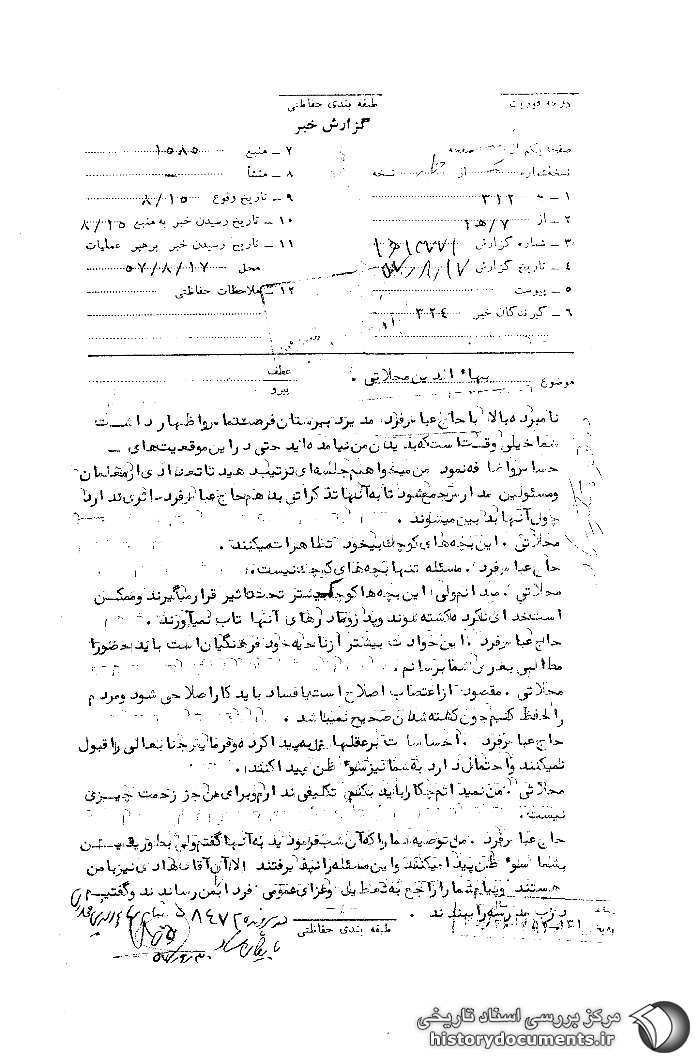 طبقه بندی حفاظتی
گزارش خبر
صفحه یکم از صفحه
نسخه شماره از نسخه
۱ – به ۳۱۲
۲ – از ۱۵/۷
۳ – شماره گزارش
۴ – تاریخ گزارش ۵۷/۸/۱۷
۵ – پیوست
۶ – گیرندگان خبر ۳۲۴
۷ – منبع ۱۵۸۵
۸ – منشأ
۹ – تاریخ وقوع ۸/۱۵
۱۰ – تاریخ رسیدن خبر به منبع ۸/۱۵
۱۱ – تاریخ رسیدن خبر برهبر عملیات
محل ۵۷/۸/۱۷
۱۲ – ملاحظات حفاظتی
موضوع بهاءالدین محلاتی .
عطف
پیرو
نامبرده بالا با حاج عباس فرد مدیر دبیرستان تماس و اظهار داشت
شما خیلی وقت است که بدیدن من نیامده اید حتی در این موقعیت های
حساس و اضافه نمود من میخواهم جلسه ای ترتیب دهید تا تعدادی از معلمان
و مسئولین مدارس جمع شوند تا به آنها تذکراتی بدهم حاج عباس فرد – اثری ندارد
چون آنها بدبین میشوند .
محلاتی . این بچه های کوچک بیخود تظاهرات میکنند .
حاج عباس فرد . مسئله تنها بچه های کوچک نیست .
محلاتی . میدانم ولی این بچه ها کوچک بیشتر تحت تاثیر قرار میگیرند و ممکن
است خدای نکرده کشته شوند و پدر و مادرهای آنها تاب نمیآورند .
حاج عباس فرد . این حوادث بیشتر از ناحیه خود فرهنگیان است باید حضورا
مطالبی بعرض شما برسانم .
محلاتی . مقصود از اعتصاب اصلاح است یا فساد باید کار اصلاحی شود و مردم
را حفظ کنیم چون کشته شدن صحیح نمیباشد .
حاج عباس فرد . احساسات بر عقلها غلبه پیدا کرده و فرمایش جنابعالی را قبول
نمیکنند و احتمال دارد به شما نیز سوء ظن پیدا کنند .
محلاتی . من نمیدانم چکار باید بکنم تکلیفی ندارم و برای من جز زحمت چیزی
نیست .
حاج عباس فرد . من توصیه شما را که آن شب فرمودید به آنها گفتم ولی بطور یقین
بشما سوء ظن پیدا میکنند و این مسئله را نپذیرفتند الا آن آقا هادی نیز با من
هستند و پیام شما را راجع به تعطیلی و عزای عمومی فردا بمن رساندند و گفتیم
درب مدرسه را ببندند .
طبقه بندی حفاظتی
مرکز بررسی اسناد تاریخی
historydocuments.ir